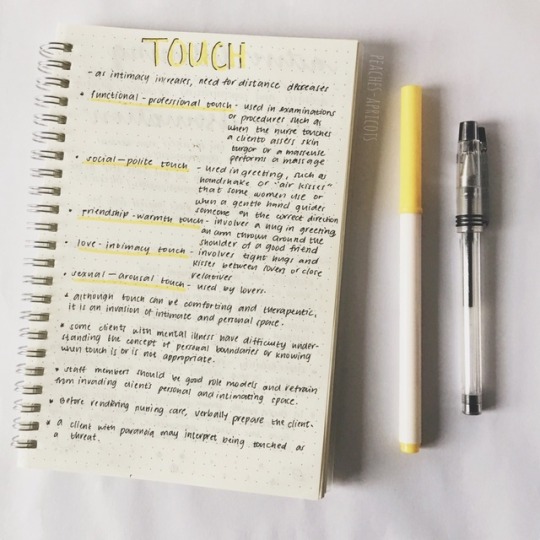 TOUCH
- as intimacy increases, need for distance decreases
• functional-professional touch - used in examinations
or procedures such as
when the nurse touches
a client to assess skin
turgor or a masseuse
performs a massage
• social-polite touch - used in greeting, such as
handshake or "air kisses"
that some women use or
when a gentle hand guides
someone in the correct direction
• friendship-warmth touch - involves a hug in greeting,
an arm thrown around the
shoulder of a good friend
• love-intimacy touch - involves tight hugs and
kisses between lovers or close
relatives
• sexual-arousal touch - used by lovers.
* although touch can be comforting and therapeutic,
it is an invasion of intimate and personal space.
* some clients with mental illness have difficulty under-
standing the concept of personal boundaries or knowing
when touch is or is not appropriate.
* staff members should be good role models and refrain
from invading client's personal and intimating space.
* Before rendering nursing care, verbally prepare the client.
* a client with paranoia may interpret being touched as
a threat.
PEACHES-APRICOTS